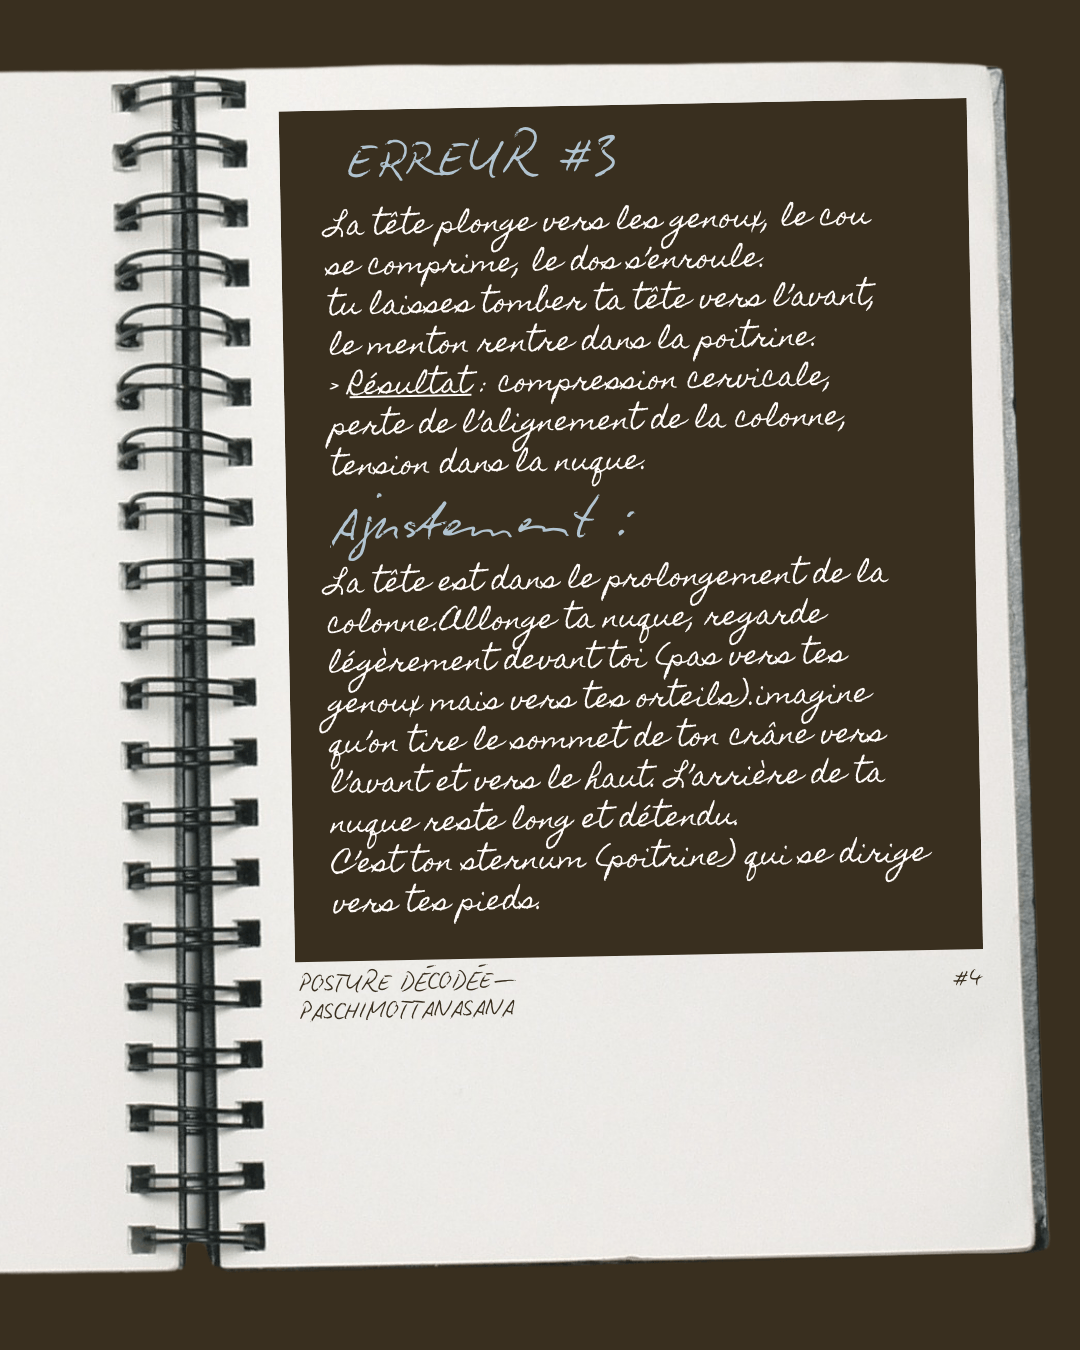 ERREUR #3
La tête plonge vers les genoux, le cou
se comprime, le dos s'enroule.
tu laisses tomber ta tête vers l'avant,
le menton rentre dans la poitrine.
> Résultat : compression cervicale,
perte de l'alignement de la colonne,
tension dans la nuque.
Ajustement :
La tête est dans le prolongement de la
colonne.Allonge ta nuque, regarde
légèrement devant toi (pas vers tes
genoux mais vers tes orteils).imagine
qu'on tire le sommet de ton crâne vers
l'avant et vers le haut. L'arrière de ta
nuque reste long et détendu.
C'est ton sternum (poitrine) qui se dirige
vers tes pieds.
POSTURE DÉCODÉE—
PASCHIMOTTANASANA
#4